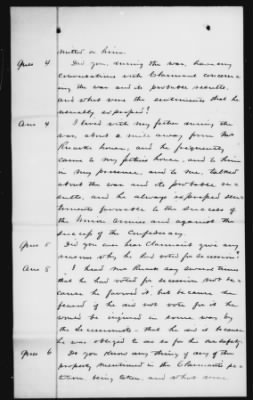 mitted on him.
Ques 4 Did you, during the war, have any
conversations with Claimant concern-
ing the war and its probable results,
and what were the sentiments that he
usually expressed?
Ans 4 I lived with my father during the
war, about a mile away, from Mr
house, and he frequently
came to my fathers house, and to him
in my presence, and to me, talked
about the war and its probable re-
sults, and he always expressed sen-
timents favorable to the success of
the Union Armies and against the
success of the Confederacy.
Ques 5 Did you ever hear Claimant give any
reason why he had voted for secession?
Ans 5 I heard Mr say several times
that he had voted for secession not be-
cause he favored it, but because he
feared if he did not vote for it he
would be injured in some way by
the Secessionists - that he did it because
he was obliged to do so for his own safety.
Ques 6 Do you know any thing of any of the
property mentioned in the Claimants pe-
tition being taken, and what